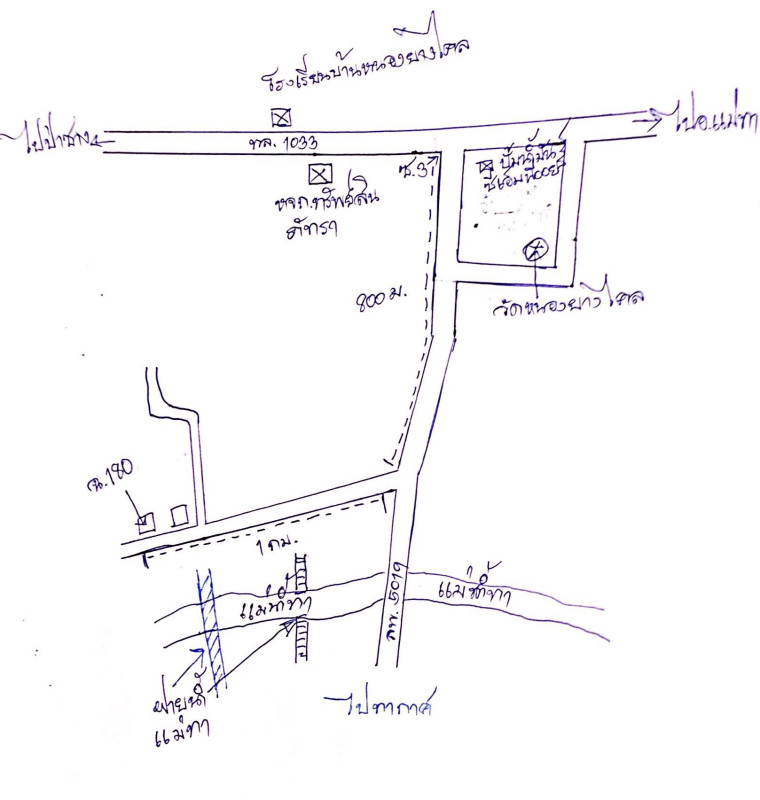 โรงเรียนบ้านหนองยางไคล
ไปป่าซาง
ทล. 1033
ไปอ.แม่ทา
ซ.3
ปั้มน้ำมัน
หจก.ทรัพย์สิน
ภัทรา
800 ม.
วัดหนองยางไคล
ฉ.180
1 กม.
ลพ. 5019
แม่น้ำทา
แม่น้ำทา
ฝายน้ำ
แม่ทา
ไปทากาศ